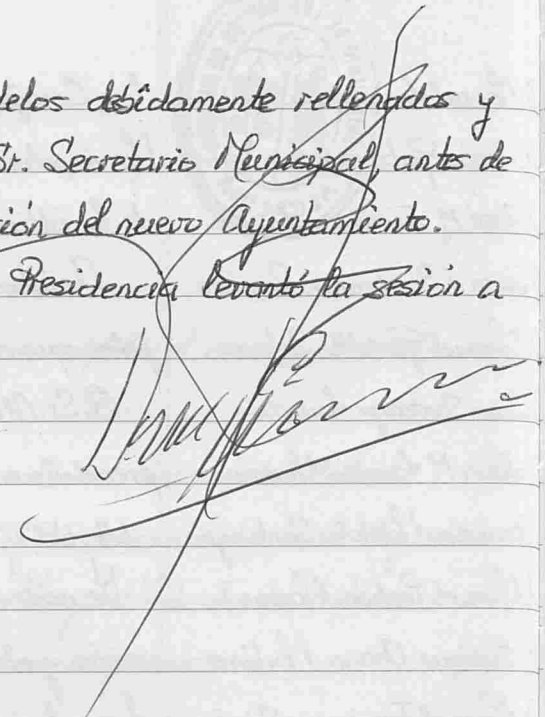 delos debidamente rellenados y
Sr. Secretario Municipal, antes de
ción del nuevo Ayuntamiento.
Presidencia levantó la sesión a